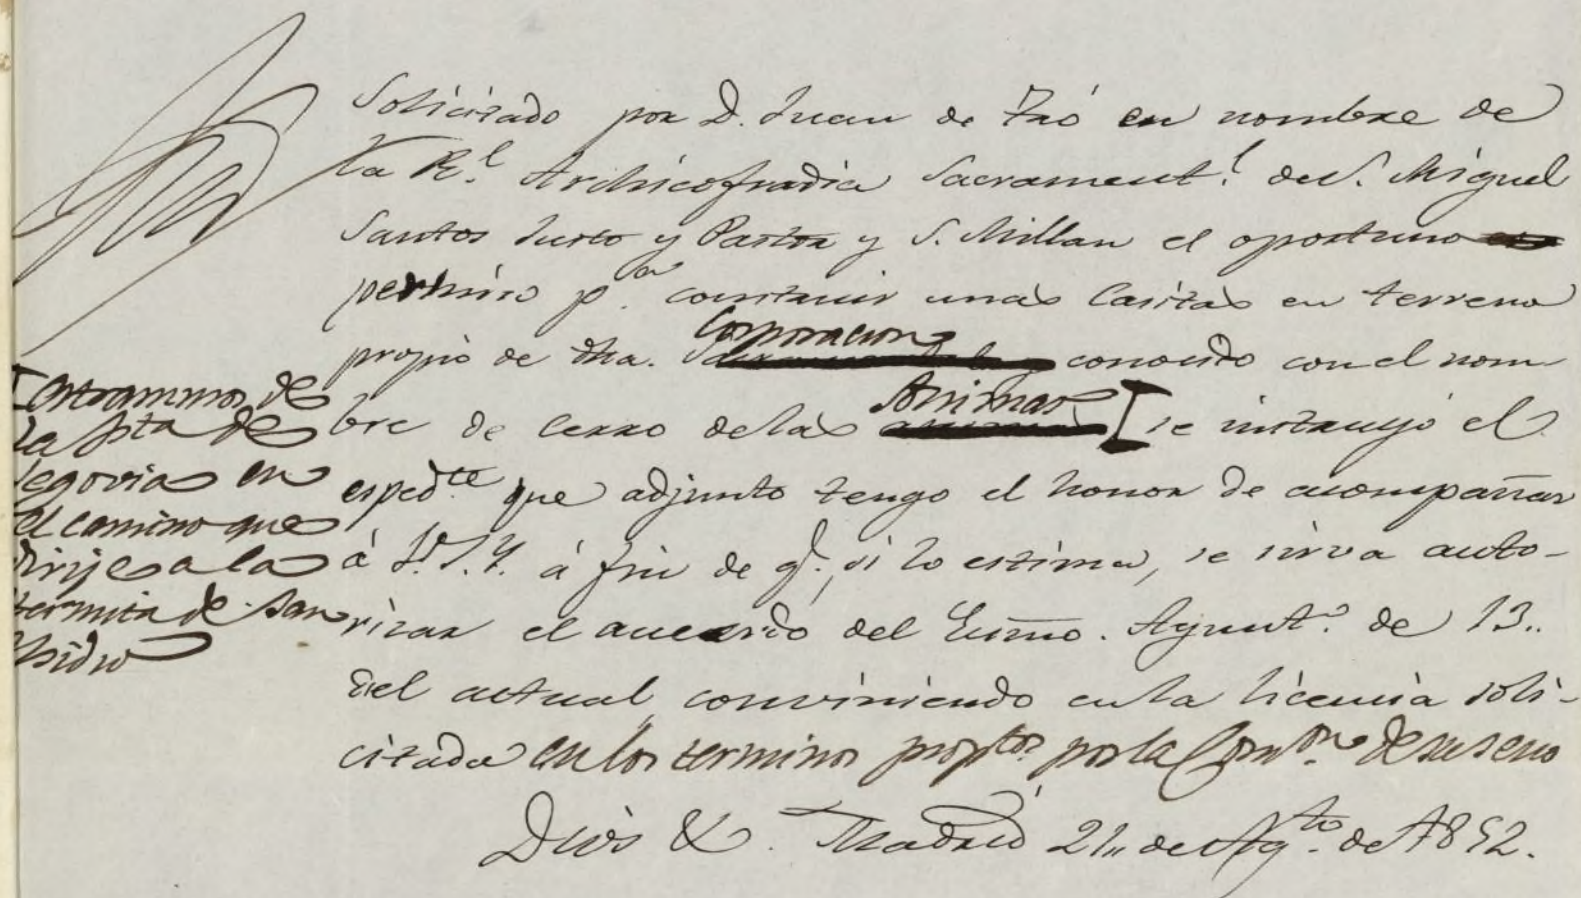 Solicitado por D. Juan de Fró en nombre de
la Rl. Archicofradia Sacramentl. de S. Miguel
Santos Justo y Pastor y S. Millan el oportuno
permiso pa. construir unas Casitas en terreno
propio de dha. Corporacion conocido con el nom-
bre de cerro de las Animas [ se instruyó el
espedte. que adjunto tengo el honor de acompañar
á V. S. Y. á fin de q. si lo estima, se sirva auto-
rizar el acuerdo del Excmo. Ayunto. de 13..
del actual, conviniendo en la licencia soli-
citada en los terminos proptos. por la Comon. de su seno
Dios &. Madrid 21,, de Agto. de 1852.
[ extramuros de
la pta de
Segovia en
el camino que
dirije a la
hermita de San
Ysidro